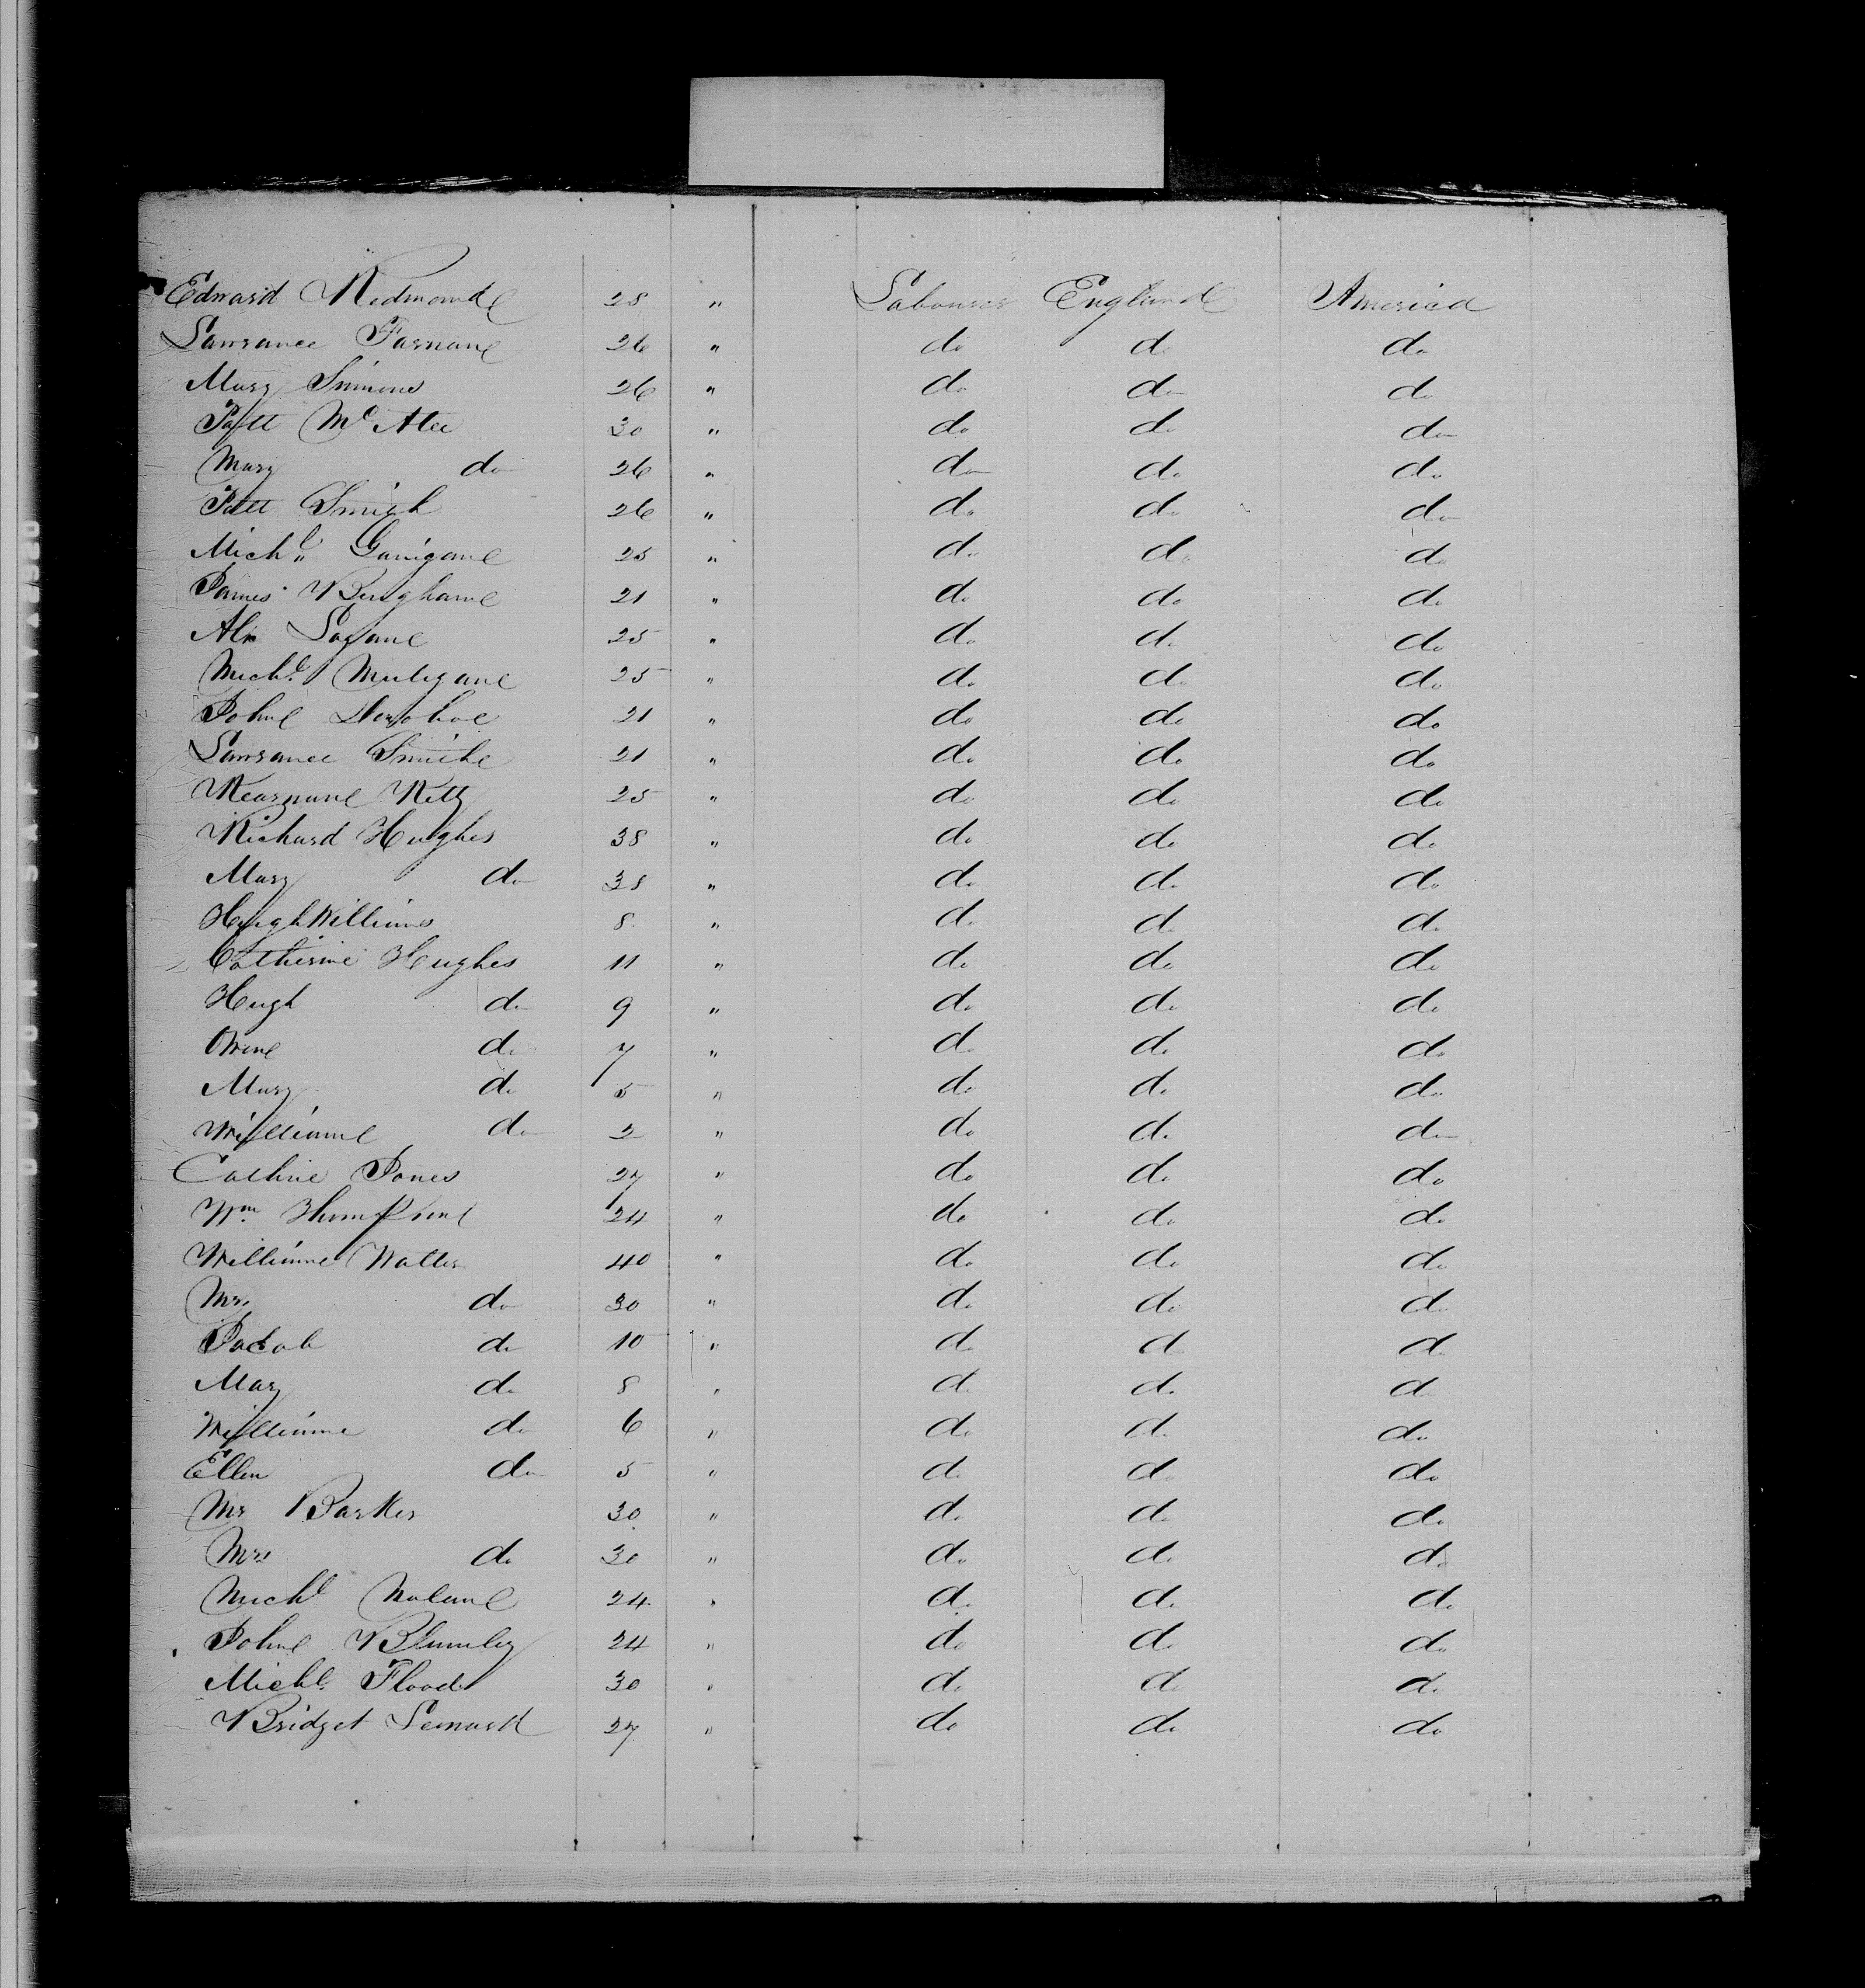 Edward Redmond 28 " Labourer England America
Lawrance Farnan 26 " do do do
Mary Simons 26 " do do do
Patt McAtee 30 " do do do
Mary do 26 " do do do
Patt Smith 26 " do do do
Michl Garigan 25 " do do do
James Bingham 21 " do do do
Alx Lagan 25 " do do do
Michl Muligan 25 " do do do
John Donohoe 21 " do do do
Lawrance Smith 21 " do do do
Kearnan Kitty 25 " do do do
Richard Hughes 38 " do do do
Mary do 38 " do do do
Hugh Williams 8 " do do do
Catherine Hughes 11 " do do do
Hugh do 9 " do do do
Owen do 7 " do do do
Mary do 5 " do do do
William do 2 " do do do
Cathine Jones 27 " do do do
Wm 24 " do do do
William Walter 40 " do do do
Mrs do 30 " do do do
Jacob do 10 " do do do
Mary do 8 " do do do
William do 6 " do do do
Ellen do 5 " do do do
Mr Barker 30 " do do do
Mrs do 30 " do do do
Michl Nolan 24 " do do do
John Blumley 24 " do do do
Michl Flood 30 " do do do
Bridget Lenard 27 " do do do